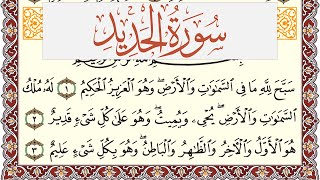 سُورَةُ الْحَدِيدِ
سَبَّحَ لِلَّهِ مَا فِي السَّمَٰوَٰتِ وَالْأَرْضِ ۖ وَهُوَ الْعَزِيزُ الْحَكِيمُ ١ لَهُۥ مُلْكُ
السَّمَٰوَٰتِ وَالْأَرْضِ ۖ يُحْيِۦ وَيُمِيتُ ۖ وَهُوَ عَلَىٰ كُلِّ شَيْءٍ قَدِيرٌ ٢
هُوَ الْأَوَّلُ وَالْآخِرُ وَالظَّٰهِرُ وَالْبَاطِنُ ۖ وَهُوَ بِكُلِّ شَيْءٍ عَلِيمٌ ٣